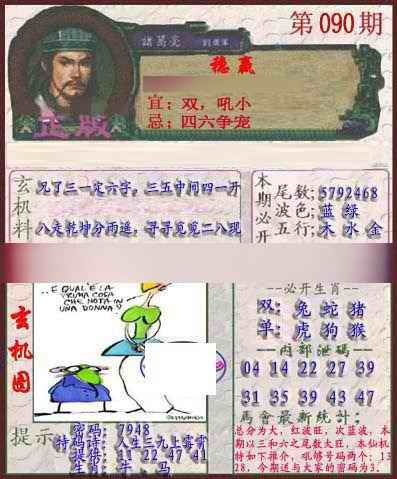 第090期
諸葛亮 劉伯軍
稳赢
宜：双，吼小
忌：四六争宠
正版
玄机料
见了三一定六字，三五中间四一开
八夫乾坤分雨遥，寻寻觅觅二八现
本期必开
尾数;5792468
波色;蓝 绿
五行;木 水 金
玄机图
..E QUAL'È LA
PRIMA COSA
CHE NOTA IN
UNA DONNA?
必开生肖
双：兔 蛇 猪
单：虎 狗 猴
内部泄码
04 14 22 27 39
31 35 39 43 47
馬會最新統計：
总分为大，红波旺，次蓝波，本
期以三和六之尾数大旺，本仙机
特如下推介，吼够号码两个：13
28，今期送与大家的密码为3.
提示
密码：7948
特码诗：人生三九上霄霄
提供：11 22 47 41
生肖：牛、马